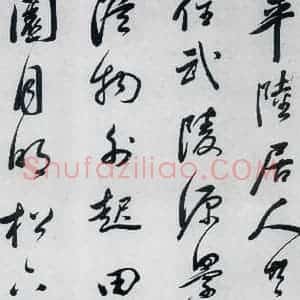 平陸居人共
住武陵源還
從物外起田
園月明松下
Shufaziliao.COM